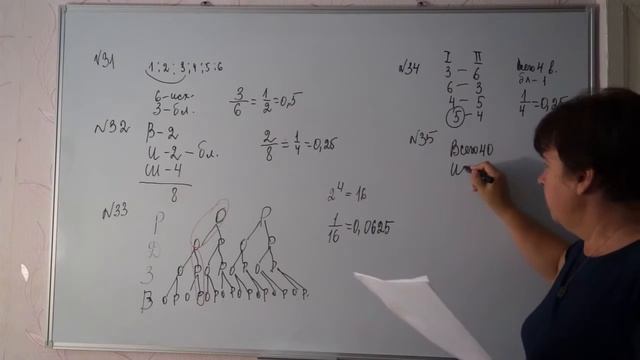 №31
1; 2; 3; 4; 5; 6
6-исх.
3-бл.
3/6 = 1/2 = 0,5
№32
В-2
И-2-бл.
Ш-4
8
2/8 = 1/4 = 0,25
№33
Р
Д
З
В
О Р О Р О Р О Р О Р О Р О Р О Р
2⁴ = 16
1/16 = 0,0625
№34
I II
3 - 6
6 - 3
4 - 5
5 - 4
всего 4 в.
бл-1
1/4 = 0,25
№35
Всего 40
И